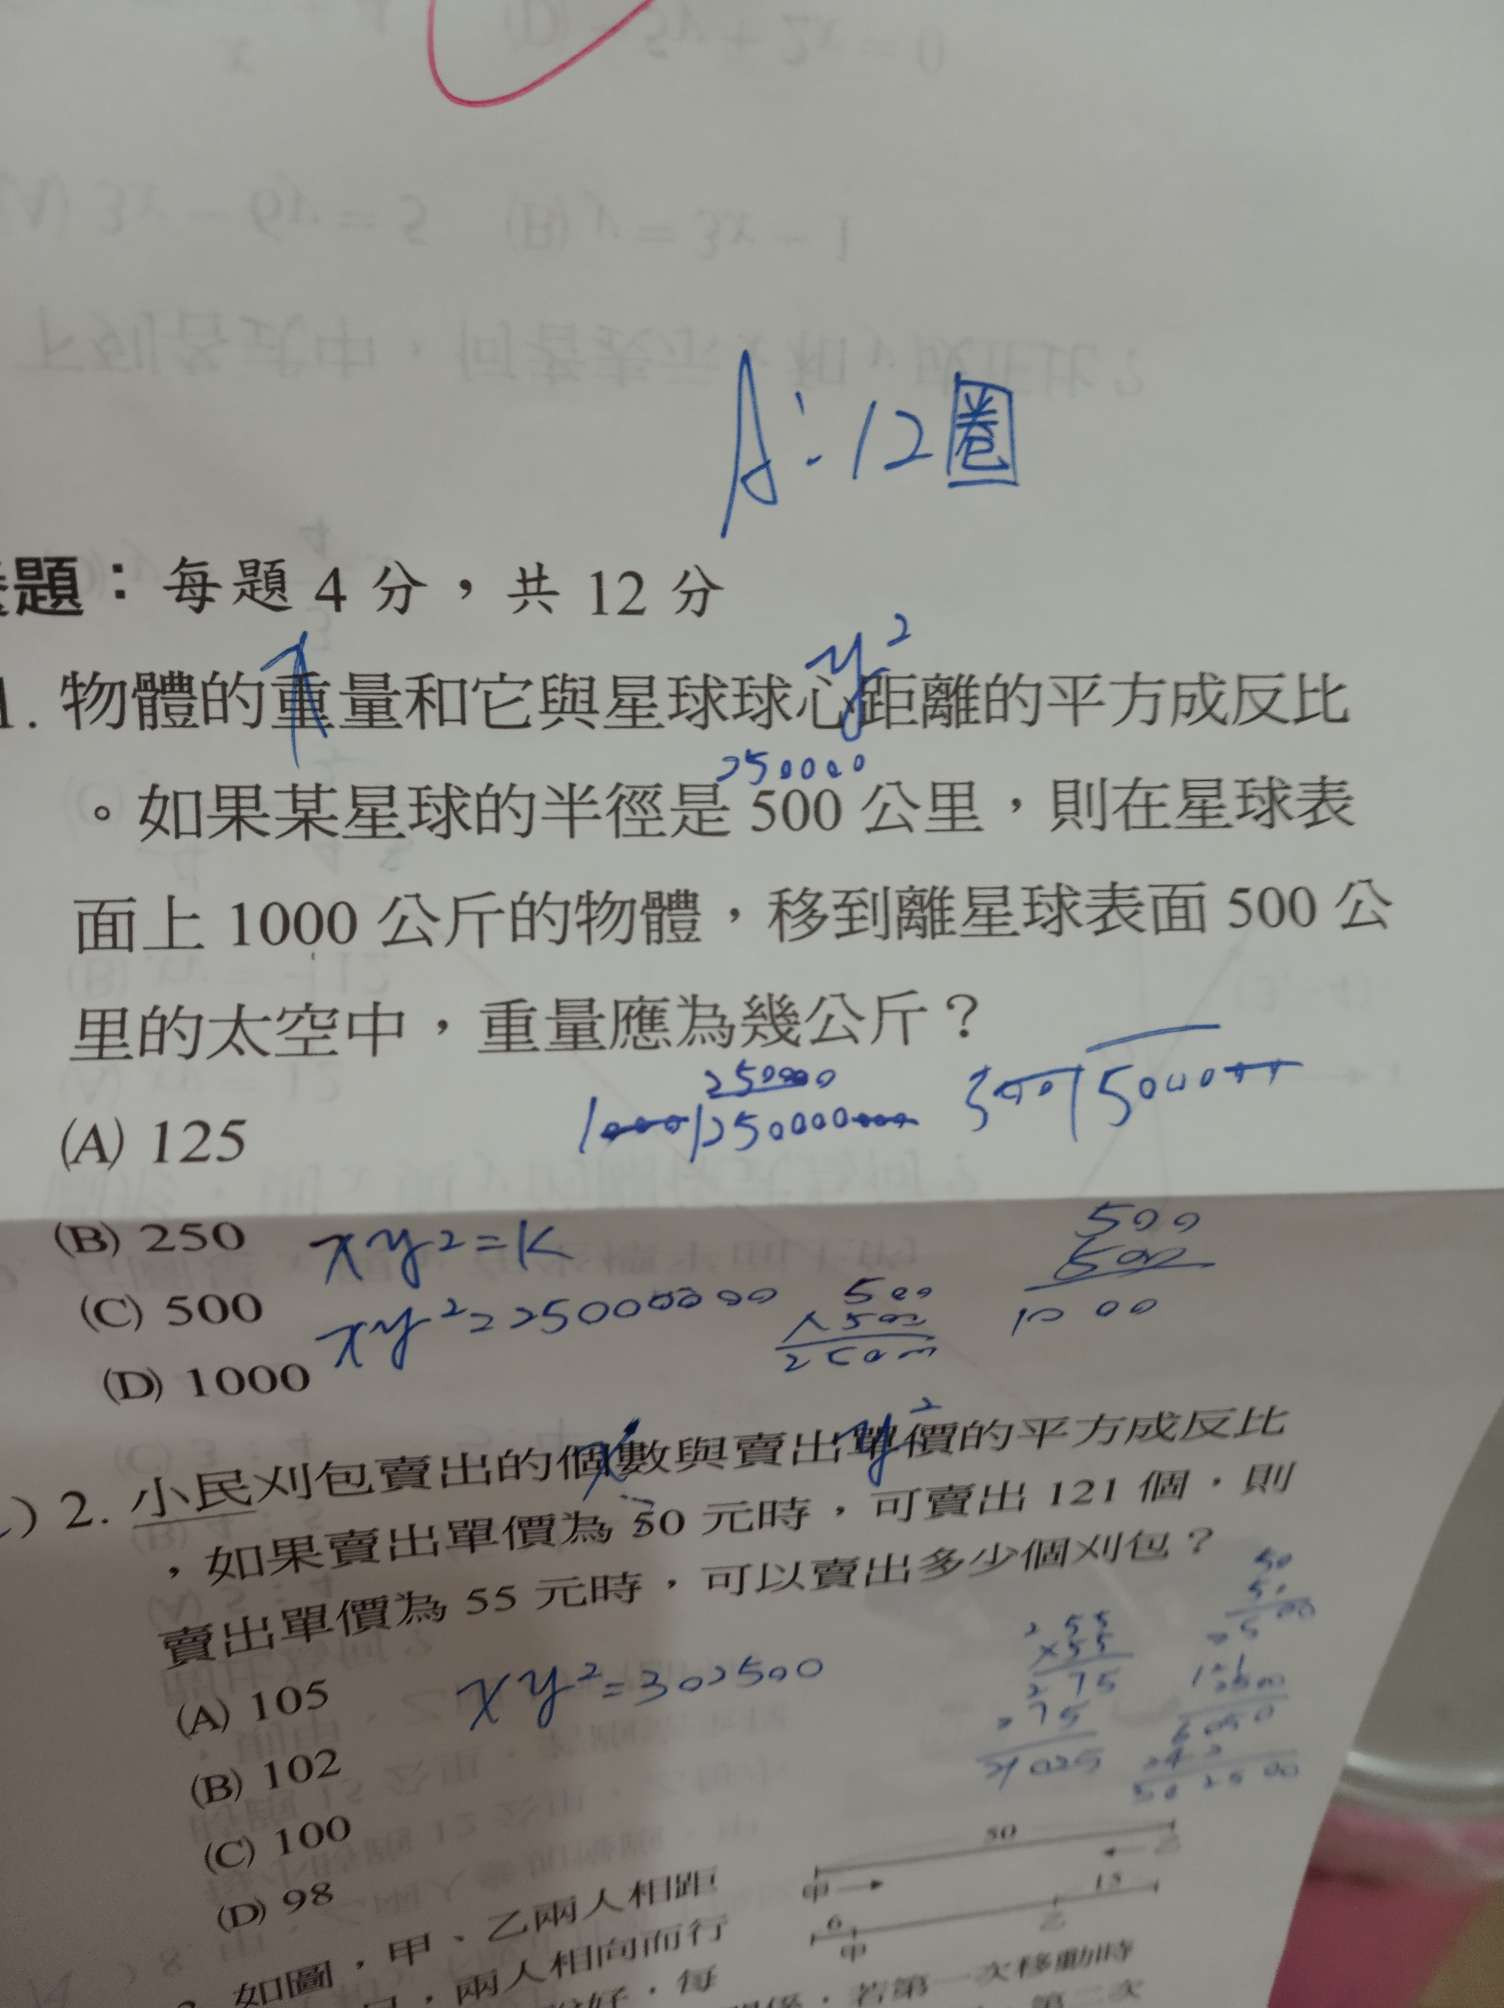 A：12圈
題：每題 4 分，共 12 分
x y²
1. 物體的重量和它與星球球心距離的平方成反比
250000
。如果某星球的半徑是 500 公里，則在星球表
面上 1000 公斤的物體，移到離星球表面 500 公
里的太空中，重量應為幾公斤？
250000
(A) 125
(B) 250 xy²=K
(C) 500 500
(D) 1000 xy²=250000000
500
500
1000
x y²
) 2. 小民刈包賣出的個數與賣出單價的平方成反比
，如果賣出單價為 50 元時，可賣出 121 個，則
賣出單價為 55 元時，可以賣出多少個刈包？
(A) 105 xy²=302500
(B) 102
(C) 100
(D) 98
55
×55
275
50
50 乙
甲
15
6 乙
甲
如圖，甲、乙兩人相距
，兩人相向而行
，每
，若第一次移動時
第二次